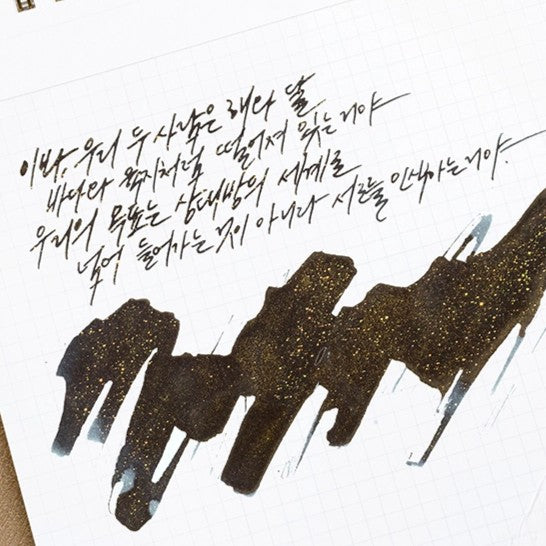 이봐, 우리 두 사람은 해와 달,
바다와 육지처럼 떨어져 있는거야
우리의 목표는 상대방의 세계로
넘어 들어가는 것이 아니라 서로를 인식하는거야.